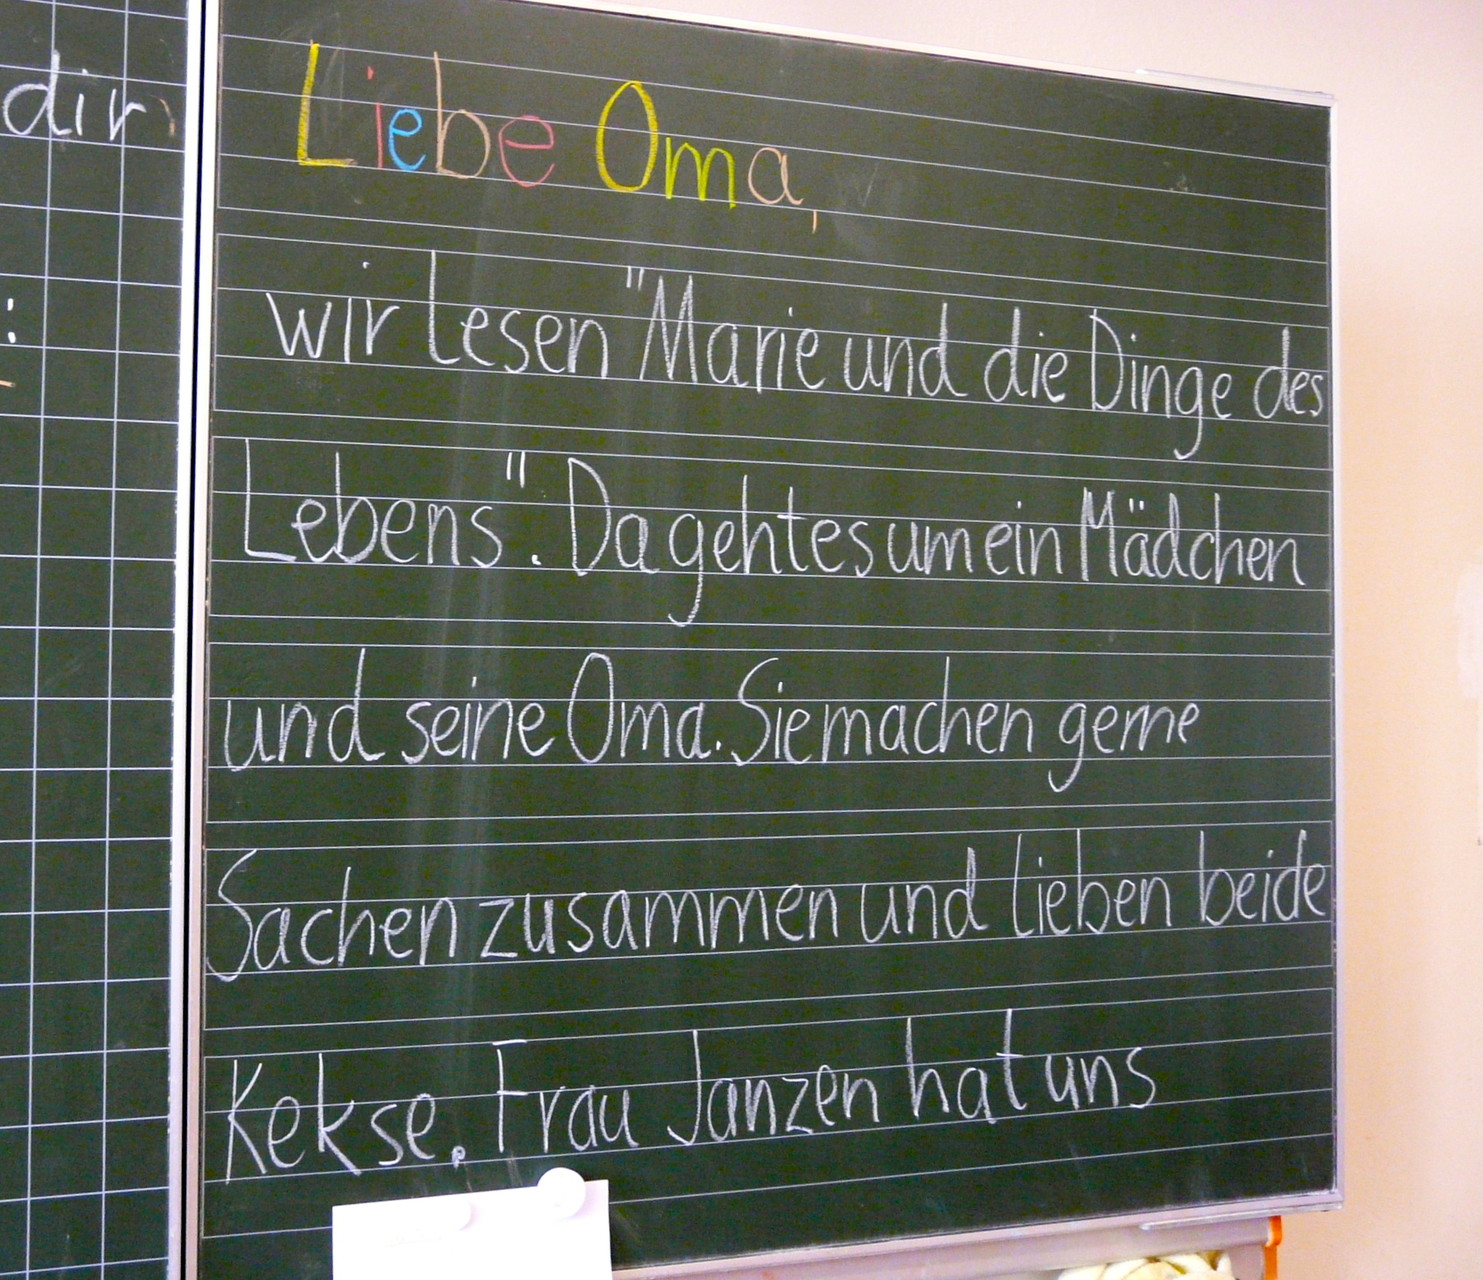 dir
:
Liebe Oma,
wir lesen "Marie und die Dinge des
Lebens". Da geht es um ein Mädchen
und seine Oma. Sie machen gerne
Sachen zusammen und lieben beide
Kekse. Frau Janzen hat uns